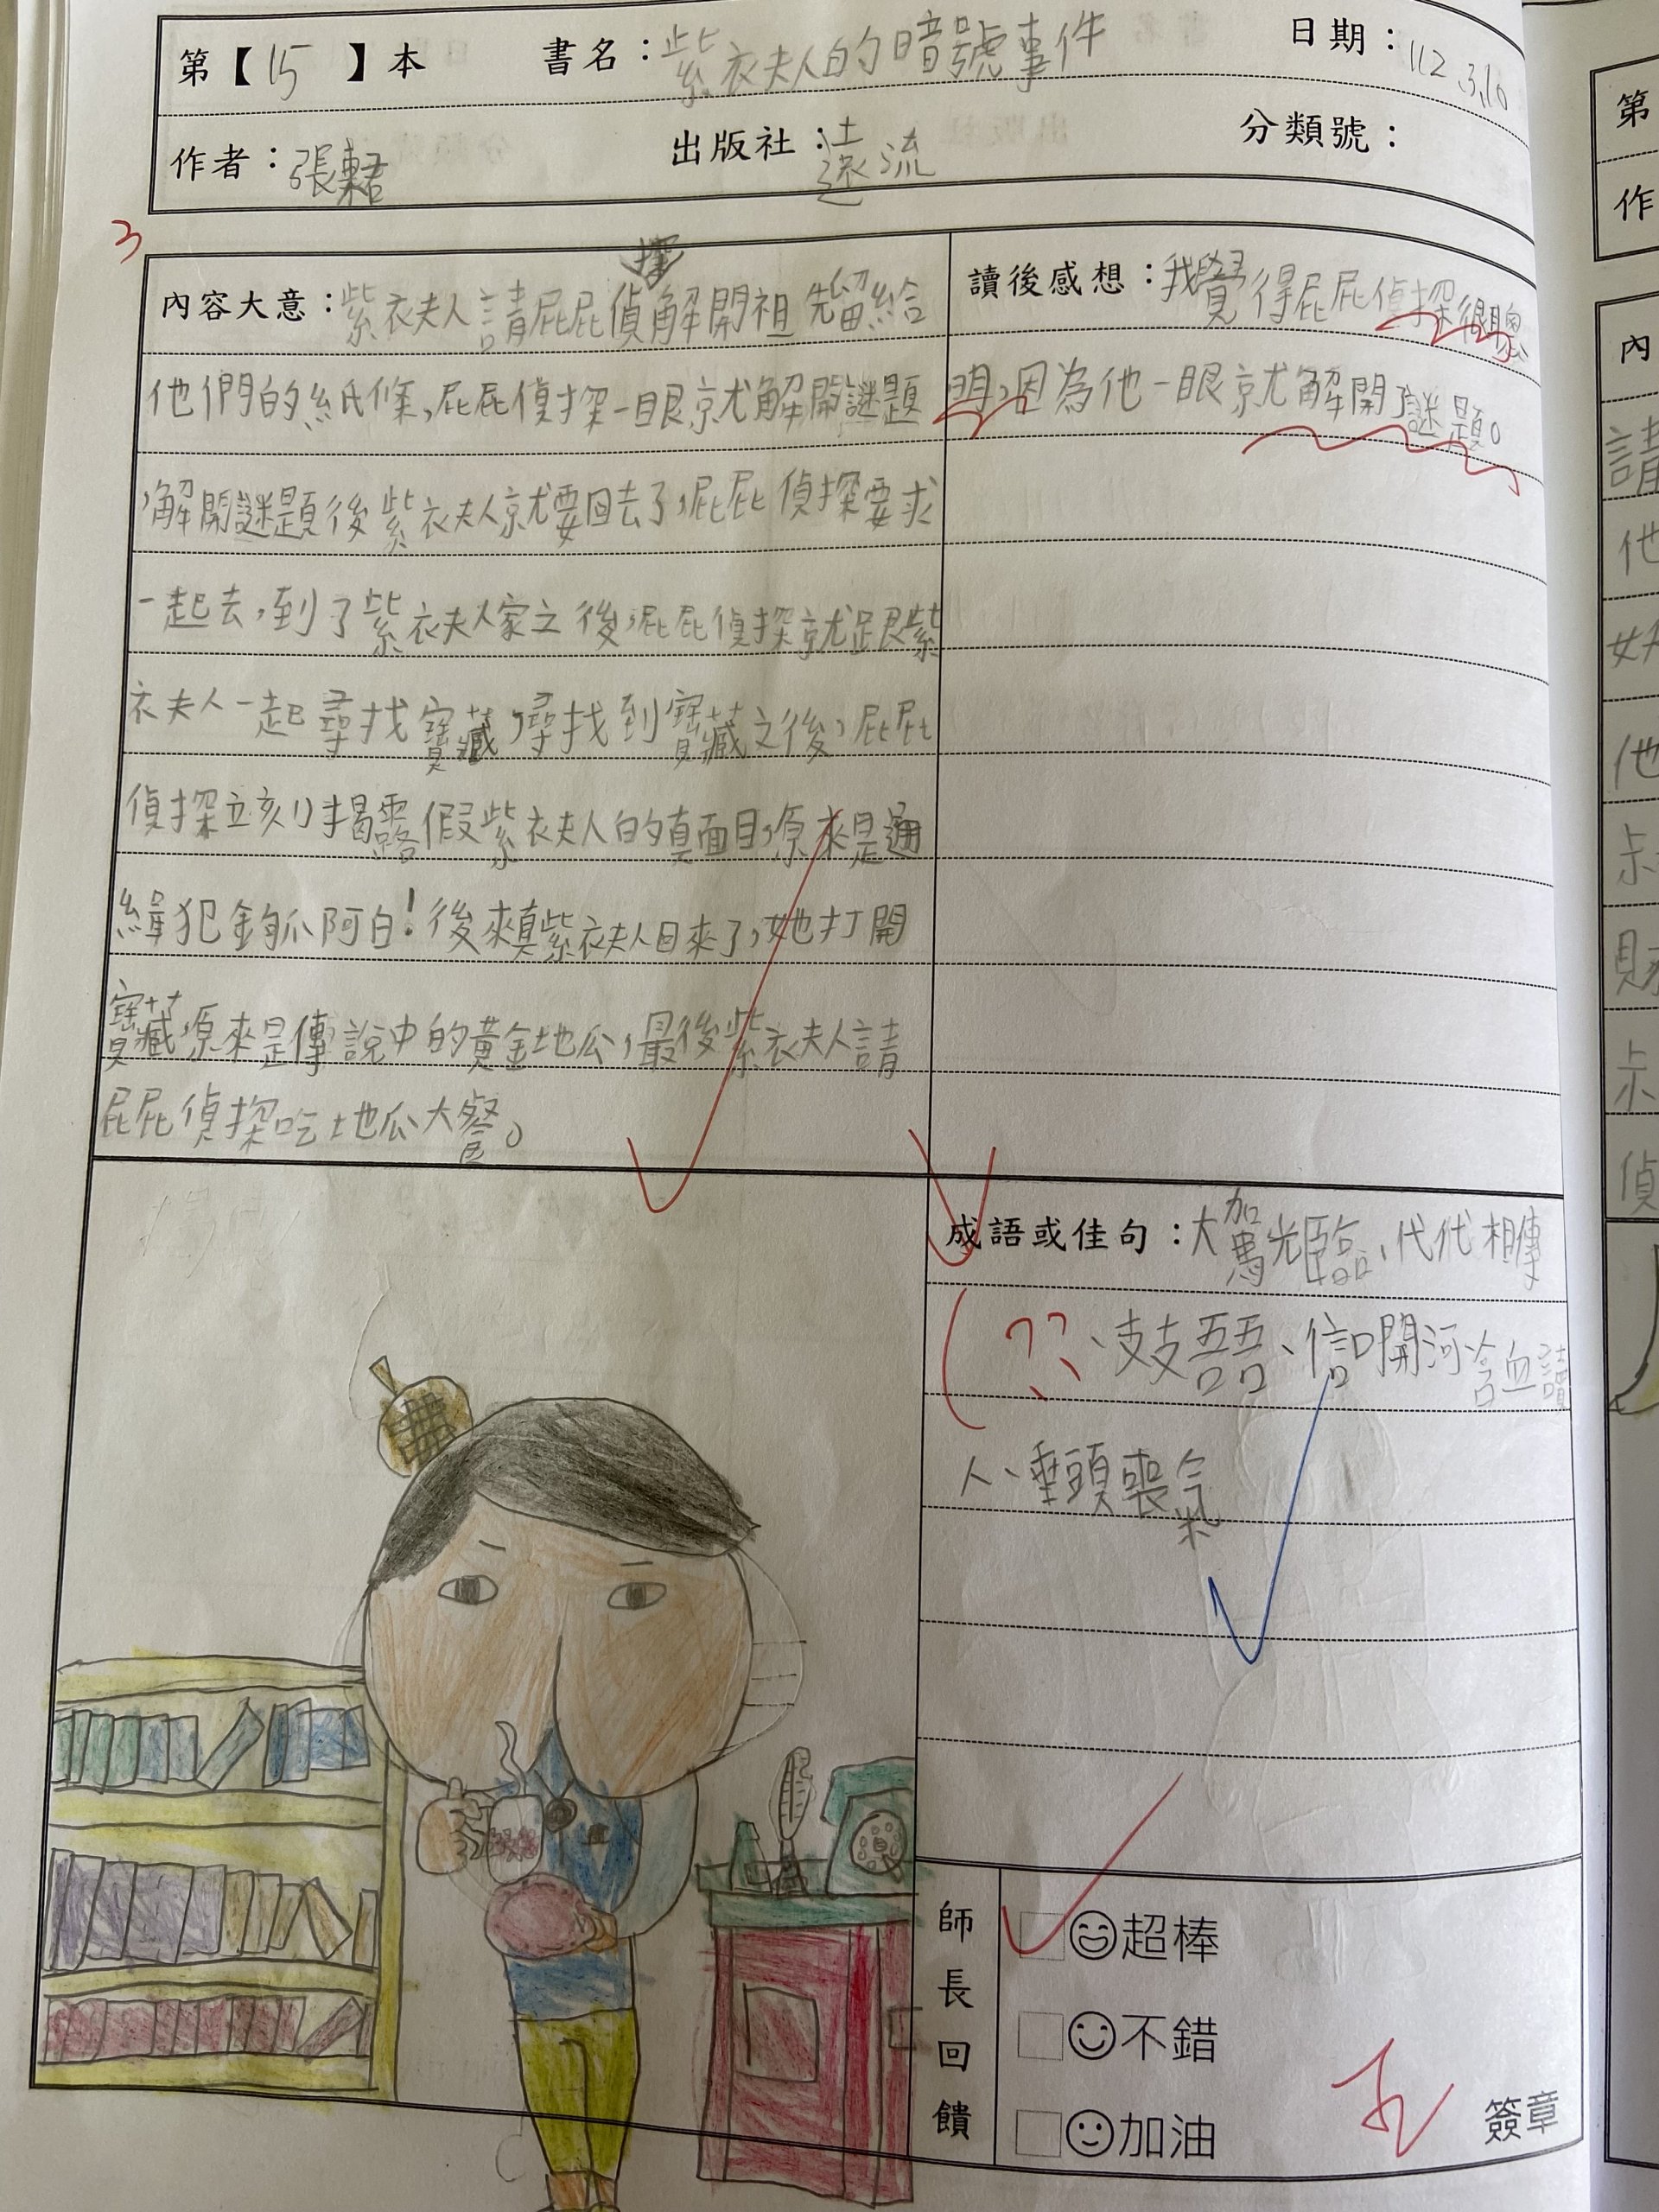 第【15】本 書名：紫衣夫人的暗號事件 日期：112.3.10
作者：張 出版社：遠流 分類號：
3
探
內容大意：紫衣夫人請屁屁偵解開祖先留給
他們的紙條,屁屁偵探一眼就解開謎題
,解開謎題後紫衣夫人就要回去了,屁屁偵探要求
一起去,到了紫衣夫人家之後,屁屁偵探就跟紫
衣夫人一起尋找寶藏,尋找到寶藏之後,屁屁
偵探立刻揭露假紫衣夫人的真面目,原來是通
緝犯 阿白!後來真紫衣夫人回來了,她打開
寶藏,原來是傳說中的黃金地瓜,最後紫衣夫人請
屁屁偵探吃地瓜大餐。
讀後感想：我覺得屁屁偵探很聰
明,因為他一眼就解開了謎題。
成語或佳句：大駕光臨、代代相傳
(??、支支吾吾、信口開河、含血
人、垂頭喪氣
師長回饋
超棒
不錯
加油
簽章
第
作
內
請
他
他
財
偵